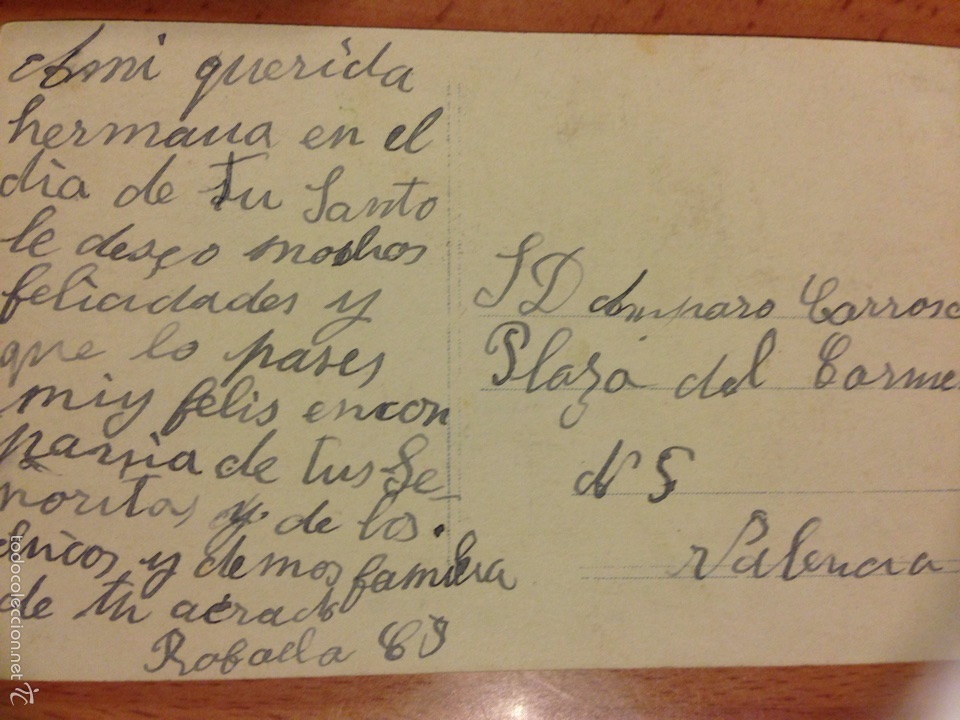 Ami querida
hermana en el
dia de Tu Santo
le deseo muchos
felicidades y
que lo pases
miy felis encon
pania de tus Se
ñoritas y de los
chicos y demos familia
de tu
Rafaela
SD Amparo Carrosc
Plaza del Carme
N 5
Valencia
todocoleccion.net